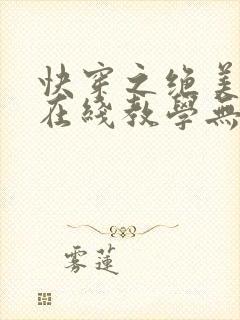 快穿之绝美
在綫教學無
雾蓮